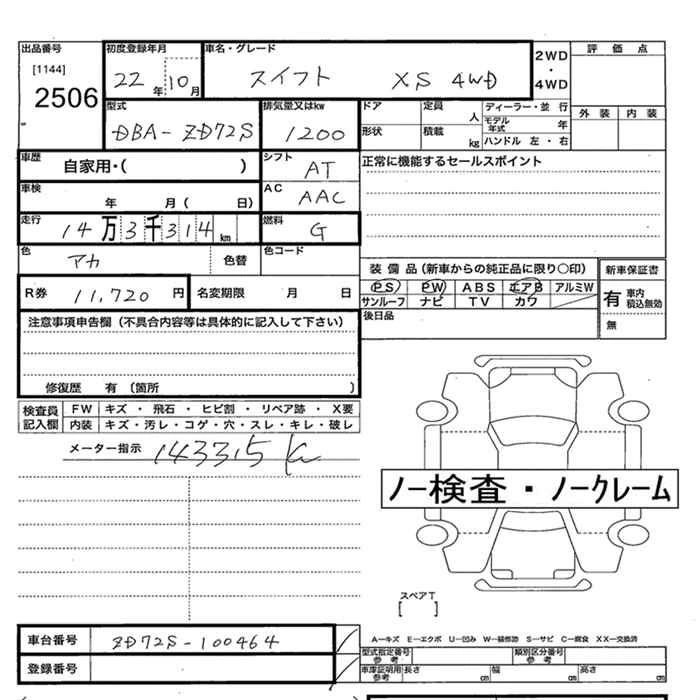 出品番号 初度登録年月 車名・グレード 2WD・4WD 評価点
[1144] 2506 22年 10月 スイフト XS 4WD 外装 内装
型式 排気量又はkw ドア 定員 人 ディーラー・並行
DBA-ZD72S 1200 形状 積載 kg モデル年式 年
ハンドル 左・右
車歴 自家用・( ) シフト AT 正常に機能するセールスポイント
車検 年 月( 日) AC AAC
走行 14万3千314km 燃料 G
色 アカ 色替 色コード
装備品(新車からの純正品に限り〇印) 新車保証書
R券 11,720円 名変期限 月 日 PS PW ABS エアB アルミW 有 車内積込無効
サンルーフ ナビ TV カワ
注意事項申告欄(不具合内容等は具体的に記入して下さい) 後日品 無
修復歴 有(箇所 )
検査員記入欄 FW キズ・飛石・ヒビ割・リペア跡・X要
内装 キズ・汚レ・コゲ・穴・スレ・キレ・破レ
メーター指示 143315 K
ノー検査・ノークレーム
スペアT
[ ]
車台番号 ZD72S-100464 A―キズ E―エクボ U―凹み W―補修跡 S―サビ C―腐食 XX―交換済
型式指定番号参考 類別区分番号参考
登録番号 車庫証明用参考 長さ cm 幅 cm 高さ cm